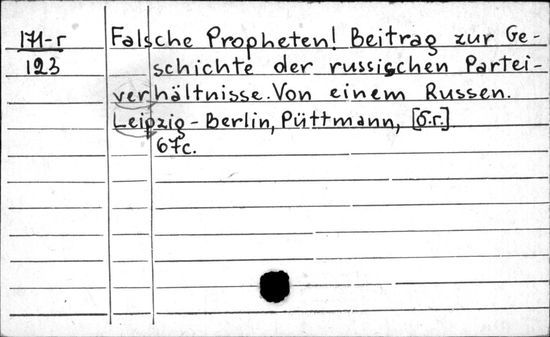 171-r Falsche Propheten! Beitrag zur Ge-
123 schichte der russischen Partei-
verhältnisse. Von einem Russen.
Leipzig-Berlin, Püttmann, [б.г.]
67с.